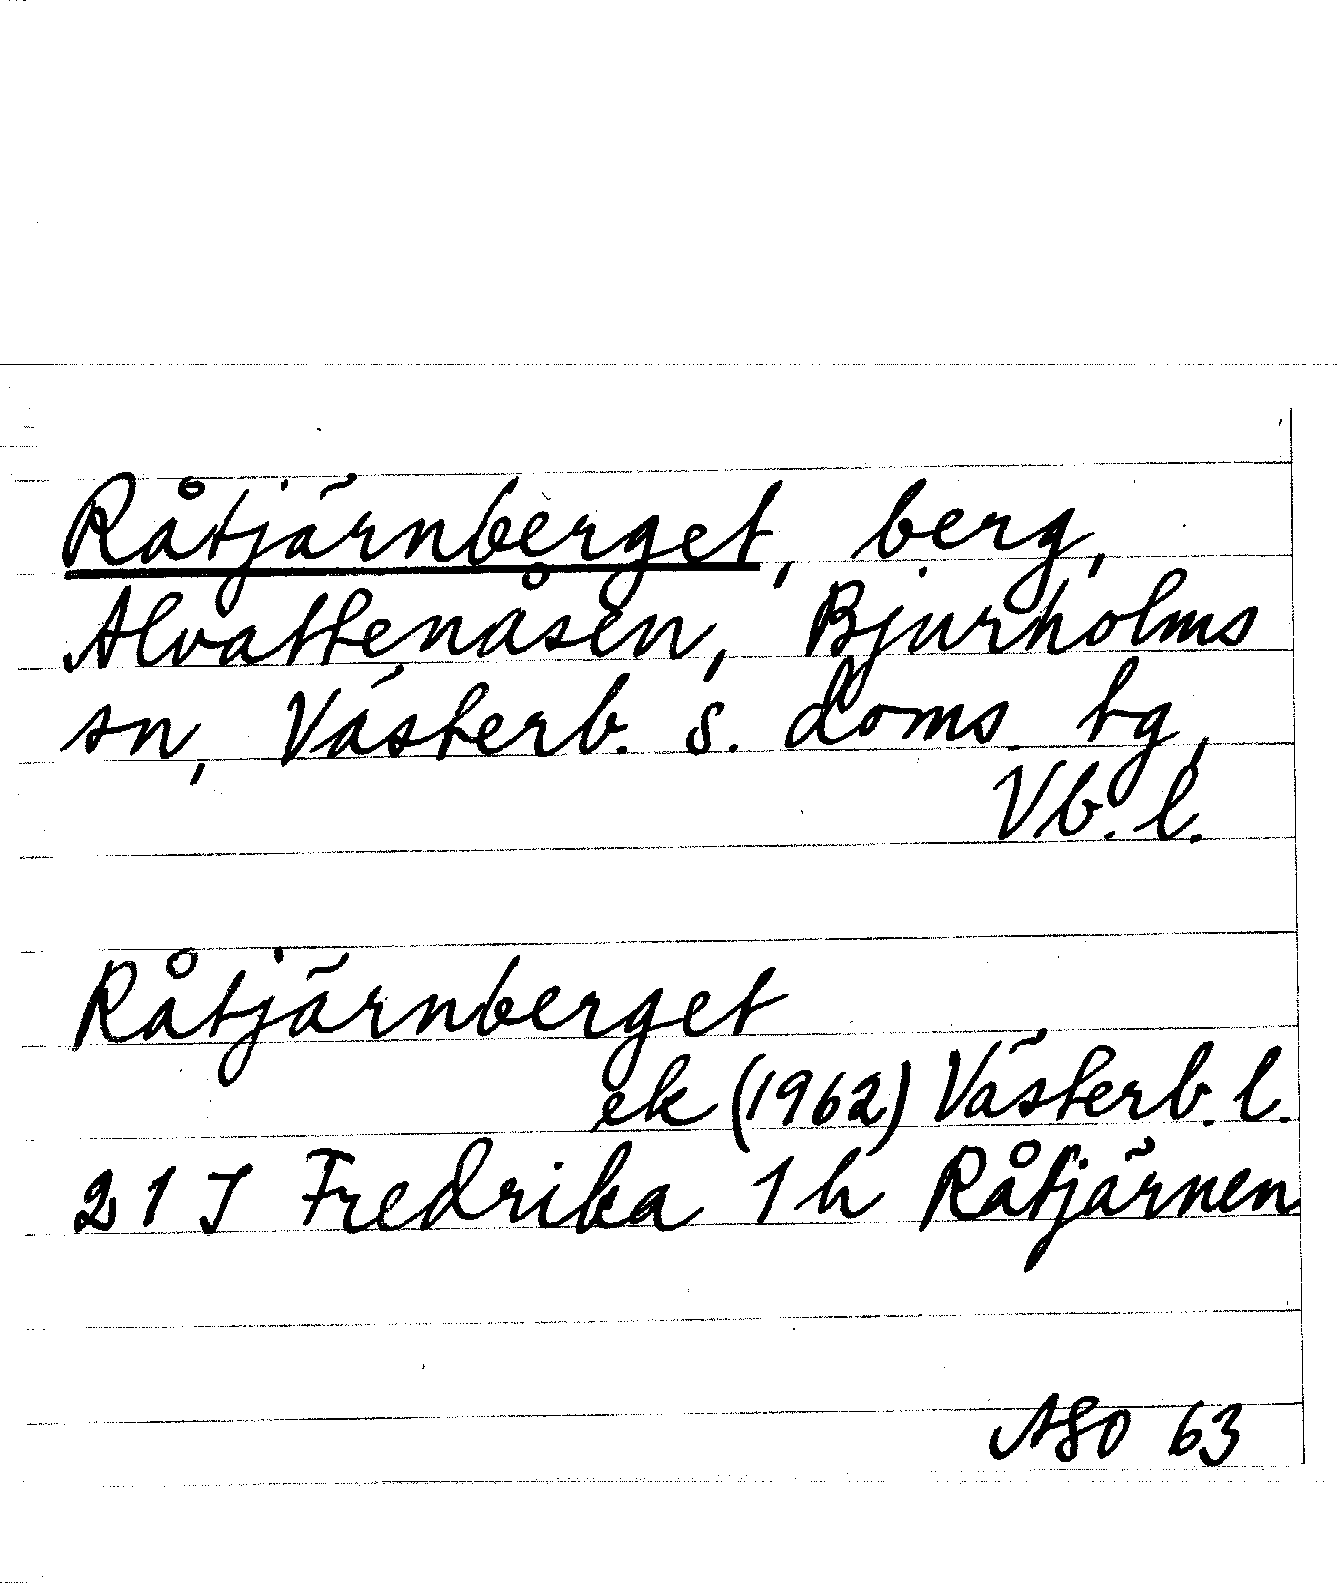 Råtjärnberget, berg,
Alvattenåsen, Bjurholms
sn, Västerb. s. doms. tg,
Vb. l.
Råtjärnberget
ek (1962) Västerb. l.
21 J Fredrika 1 h Råtjärnen
ASO 63